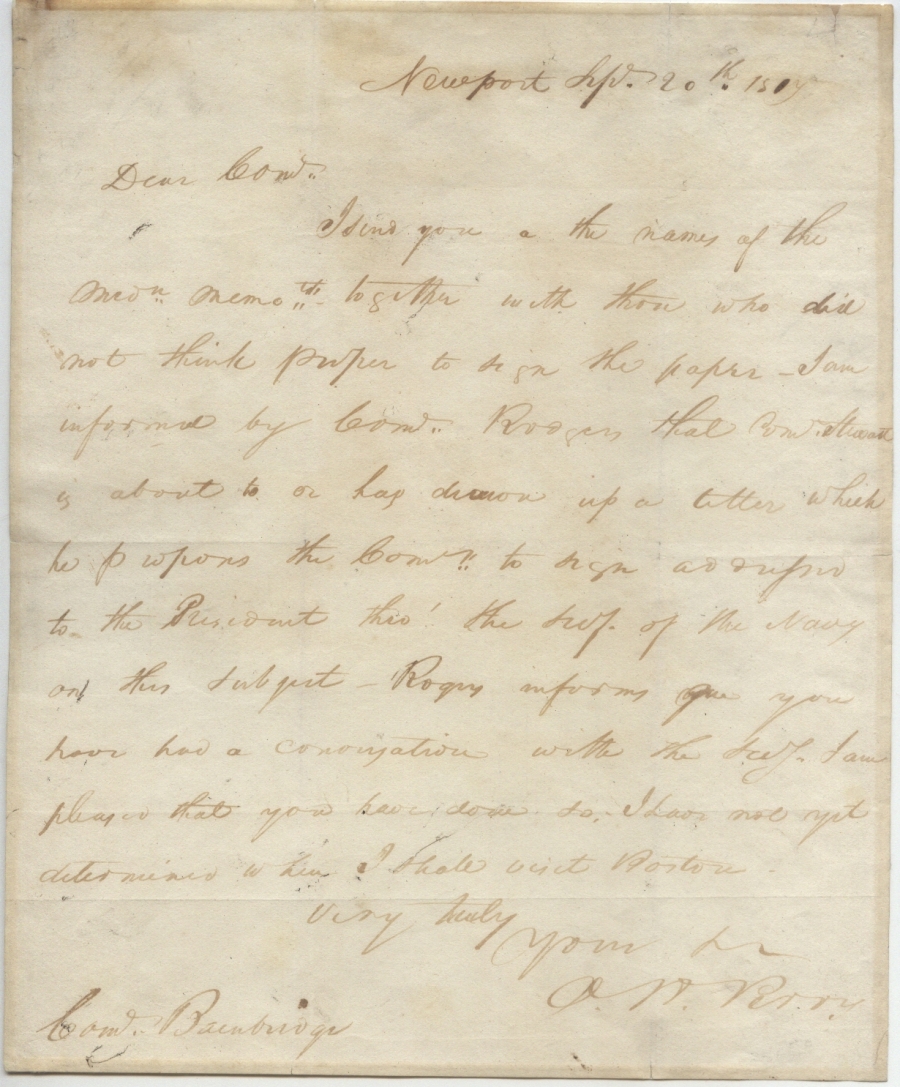 Newport Sepr. 20th. 181
Dear Comd..
I send you a the names of the
Medn memorts. together with those who did
not think proper to sign the paper - I am
informed by Comd.. Rodgers that Comd. Stewart
is about to or has drawn up a letter which
he proposes the Comds. to sign addressed
to the President thro' the Secy. of the Navy
on this subject - Rogers informs me you
have had a conversation with the Secy. I am
pleased that you have done so. I have not yet
determined when I shall visit Boston
Very truly
Your Sr
O. H. Perry
Comd. Bainbridge